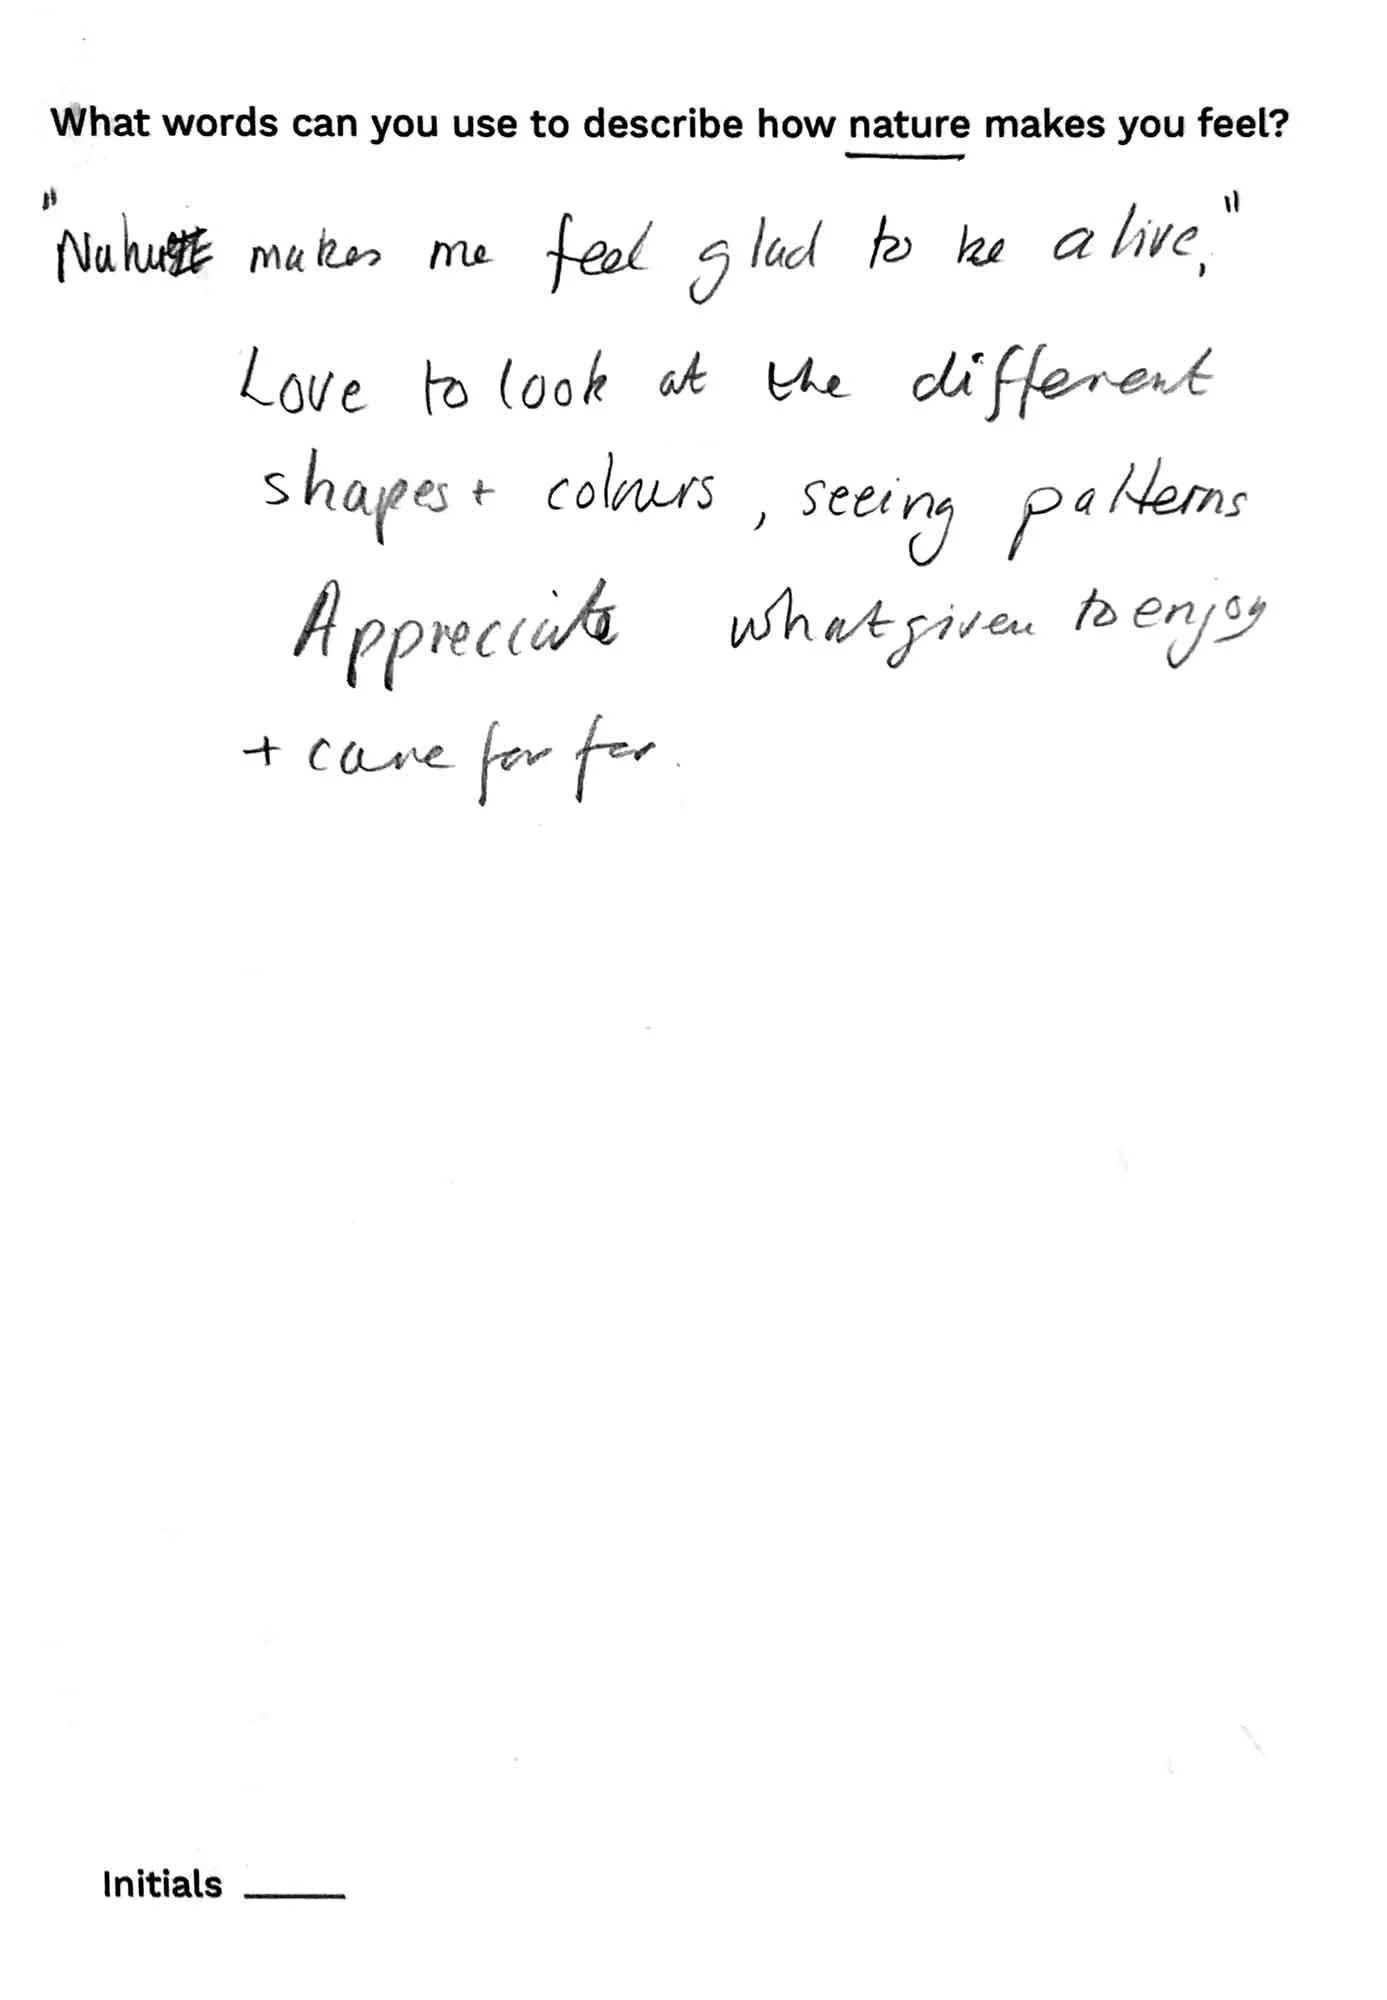 What words can you use to describe how nature makes you feel?
"Nature makes me feel glad to be alive."
Love to look at the different
shapes + colours, seeing patterns
Appreciate what given to enjoy
+ care for for.
Initials